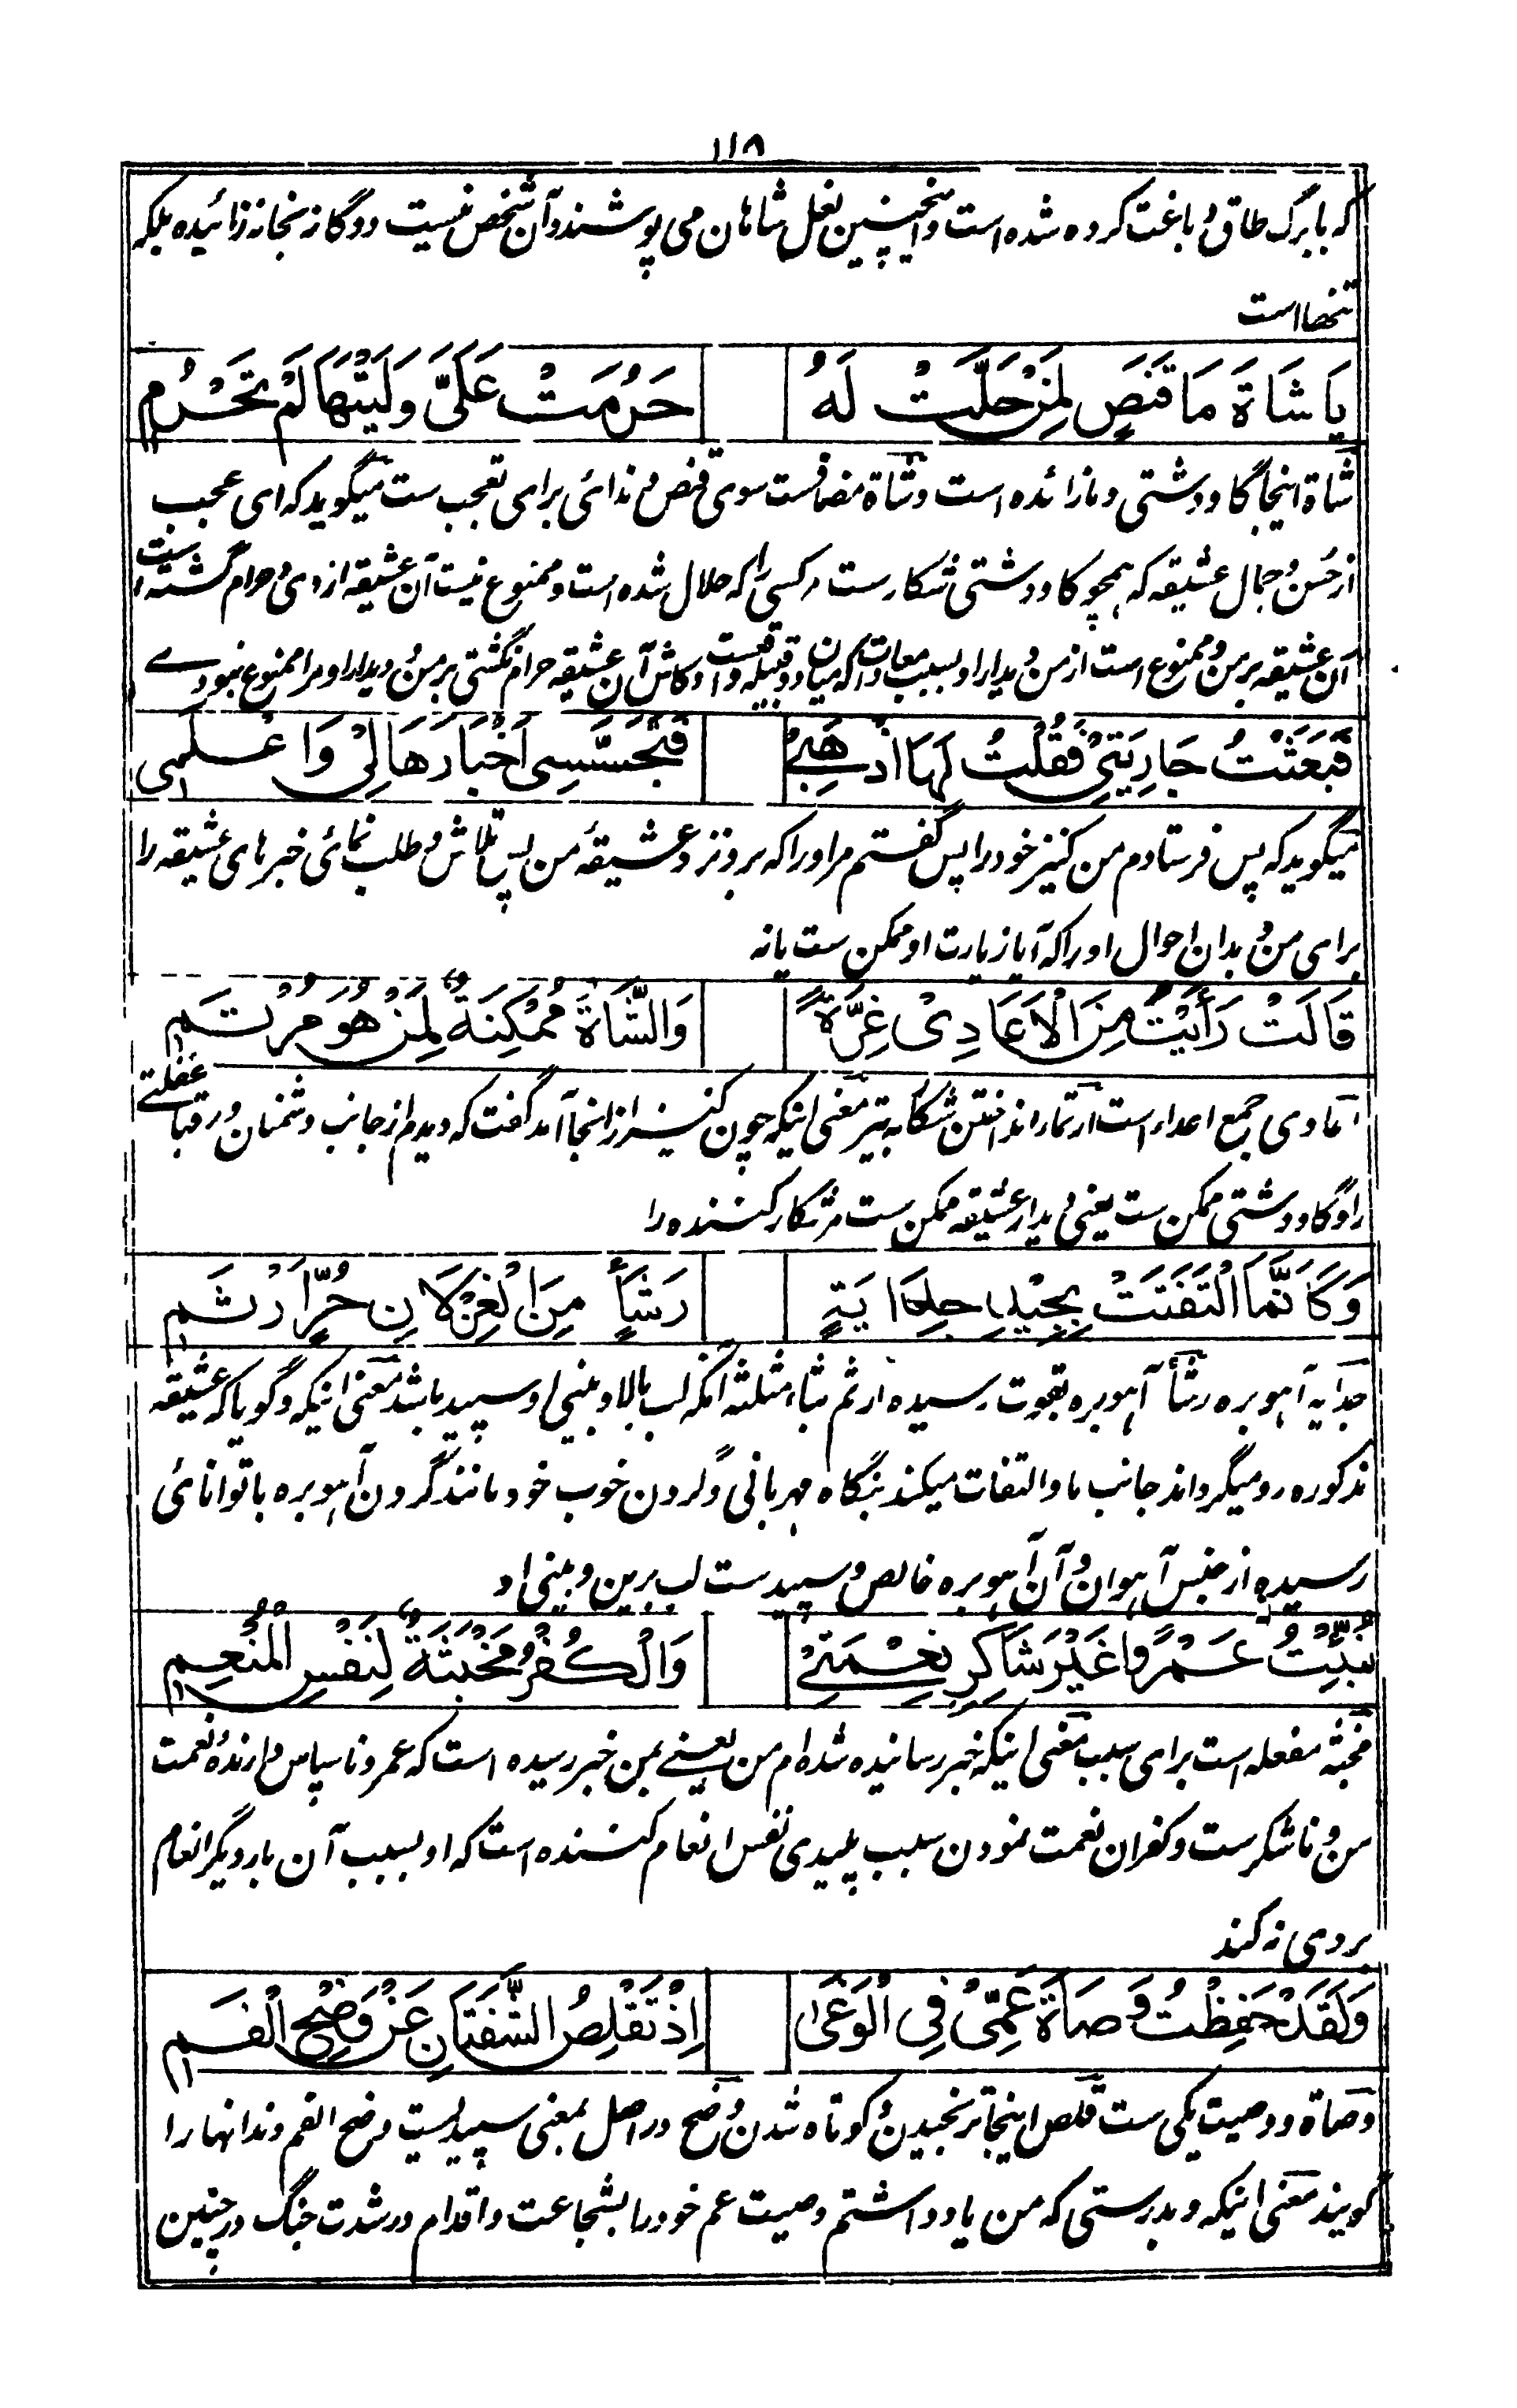 ۱۱۸
که ببرگ طاق و باغت کرده شده است و اینچنین نعل شاهان می پوشند و آن شخص نیست دوگانه بخانه زائیده بلکه
تنها است
يَا شَاةَ مَا قَنَصٍ لِمَنْ حَلَّتْ لَهُ حَرُمَتْ عَلَىَّ وَلَيْتَهَا لَمْ تَحْرُمِ
شاة اینجا گاو دشتی و ما زائده است و شاة مضافست سوی قنص و ندائی برای تعجب ست میگوید که ای عجب
از حسن و جمال عشیقه که همچو گاو دشتی شکارست مر کسی را که حلال شده است و ممنوع نیست آن عشیقه از وی و حرام گشته است
آن عشیقه بر من و ممنوع است از من دیدار او بسبب معاداتی که میان دو قبیله واقعست و کاش آن عشیقه حرام نگشتی بر من و دیدار او مرا ممنوع نبودے
فَبَعَثْتُ جَارِيَتِىْ فَقُلْتُ لَهَا اذْهَبِىْ فَتَجَسَّسِى اَخْبَارَهَا لِىْ وَاعْلَمِى
میگوید که پس فرستادم من کنیز خود را پس گفتم مر او را که برو نزد عشیقۀ من پس تلاش و طلب نمائی خبرهای عشیقه را
برای من و بدان احوال او را که آیا زیارت او ممکن ست یا نه
قَالَتْ رَأَيْتُ مِنَ الْاَعَادِىْ غِرَّةً وَالشَّاةُ مُمْكِنَةٌ لِمَنْ هُوَ مُرْتَمِ
اعادی جمع اعداء است ارتماء انداختن شکار به تیر معنی اینکه چون کنیز از انجا آمد گفت که دیدم از جانب دشمنان و رقبا غفلتے
را و گاو دشتی ممکن ست یعنی دیدار عشیقه ممکن ست مر شکار کننده را
وَكَاَنَّمَا الْتَفَتَتْ بِجِيْدِ جِدَايَةٍ رَشَأٍ مِنَ الْغِزْلَانِ حُرٍّ اَرْثَمِ
جدایه آهو بره رشأ آهو بره بقوت رسیده ارثم بثاء مثلثه آنکه لب بالا و بینی او سپید باشد معنی اینکه و گویا که عشیقه
مذکوره رو میگرداند جانب ما و التفات میکند بنگاه مهربانی و گردن خوب خود مانند گردن آهو بره با توانائی
رسیده از جنس آهوان و آن آهو بره خالص و سپیدست لب برین و بینی او
نُبِّئْتُ عَمْرًوا غَيْرَ شَاكِرِ نِعْمَتِىْ وَالْكُفْرُ مَخْبَثَةٌ لِنَفْسِ الْمُنْعِمِ
مخبثه مفعله است برای سبب معنی اینکه خبر رسانیده شده ام من یعنے بمن خبر رسیده است که عمرو ناسپاس دارندۀ نعمت
من و ناشکرست و کفران نعمت نمودن سبب پلیدی نفس انعام کننده است که او بسبب آن بار دیگر انعام
بر وی نه کند
وَلَقَدْ حَفِظْتُ وَصَاةَ عَمِّىْ فِى الْوَغَى اِذْ تَقْلِصُ الشَّفَتَانِ عَنْ وَضَحِ الْفَمِ
وصاة و وصیت یکی ست قلص اینجا ترنجیدن و کوتاه شدن و وضح در اصل بمعنی سپیدیست وضح الفم دندانها را
گویند معنی اینکه و بدرستی که من یاد داشتم وصیت عم خود را بشجاعت و اقدام در شدت جنگ در چنین